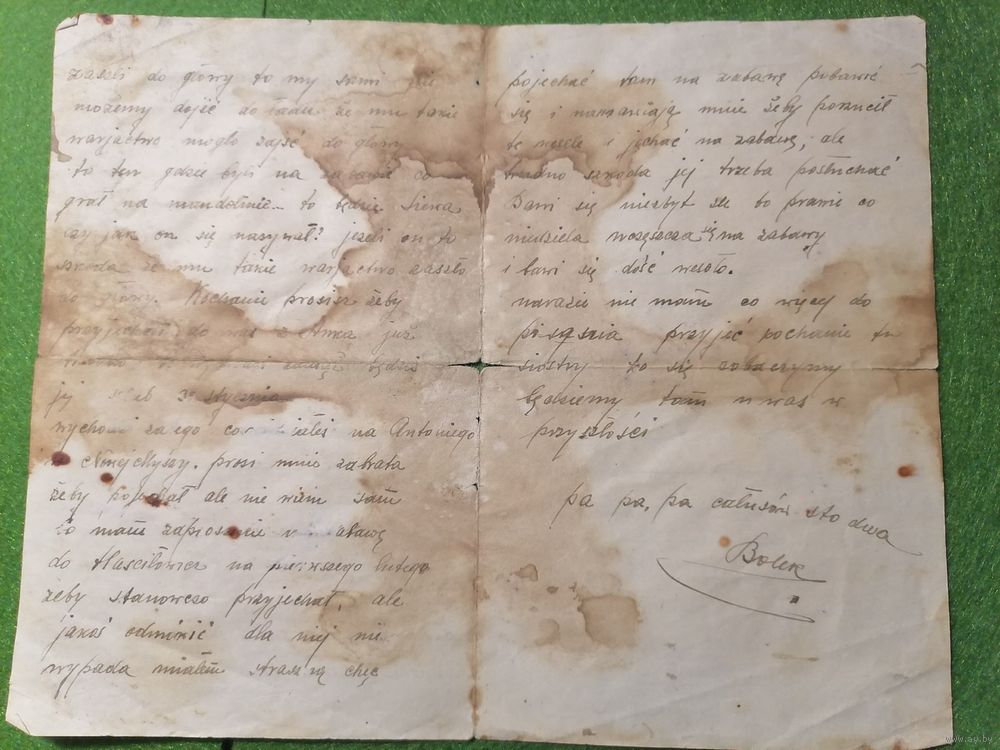 zaszli do głowy to my sami nie
możemy dojść do ładu że mu takie
warjactwo mogło zajść do głowy
to ten gdzie był na zabawie co
grał na mandolinie to będzie
czy jak on się nazywał? jeżeli on to
szkoda że mu takie warjactwo zaszło
do głowy. Kochanie prosisz żeby
przyjechać do was z już
trudno będzie
jej ślub stycznia
wychodzi za ego co na Antoniego
prosi mnie za brata
żeby pojechał ale nie wiem sam
to mam zaproszenie
do na pierwszego lutego
żeby stanowczo przyjechał, ale
jakoś odmówić dla niej nie
wypada miałem straszną chęć
pojechać tam na zabawę pobawić
się i namawiają mnie żeby porzucił
te wesele i jechać na zabawę, ale
trudno szkoda jej trzeba posłuchać
Bawi się niezbyt źle bo prawie co
niedziela się na zabawy
i bawi się dość wesoło.
narazie nie mam co więcej do
pisania przyjść kochanie tu
siostry to się zobaczymy
będziemy tam u was w
przyszłości
pa pa, pa całusów sto dwa
Bolek
www.ay.by